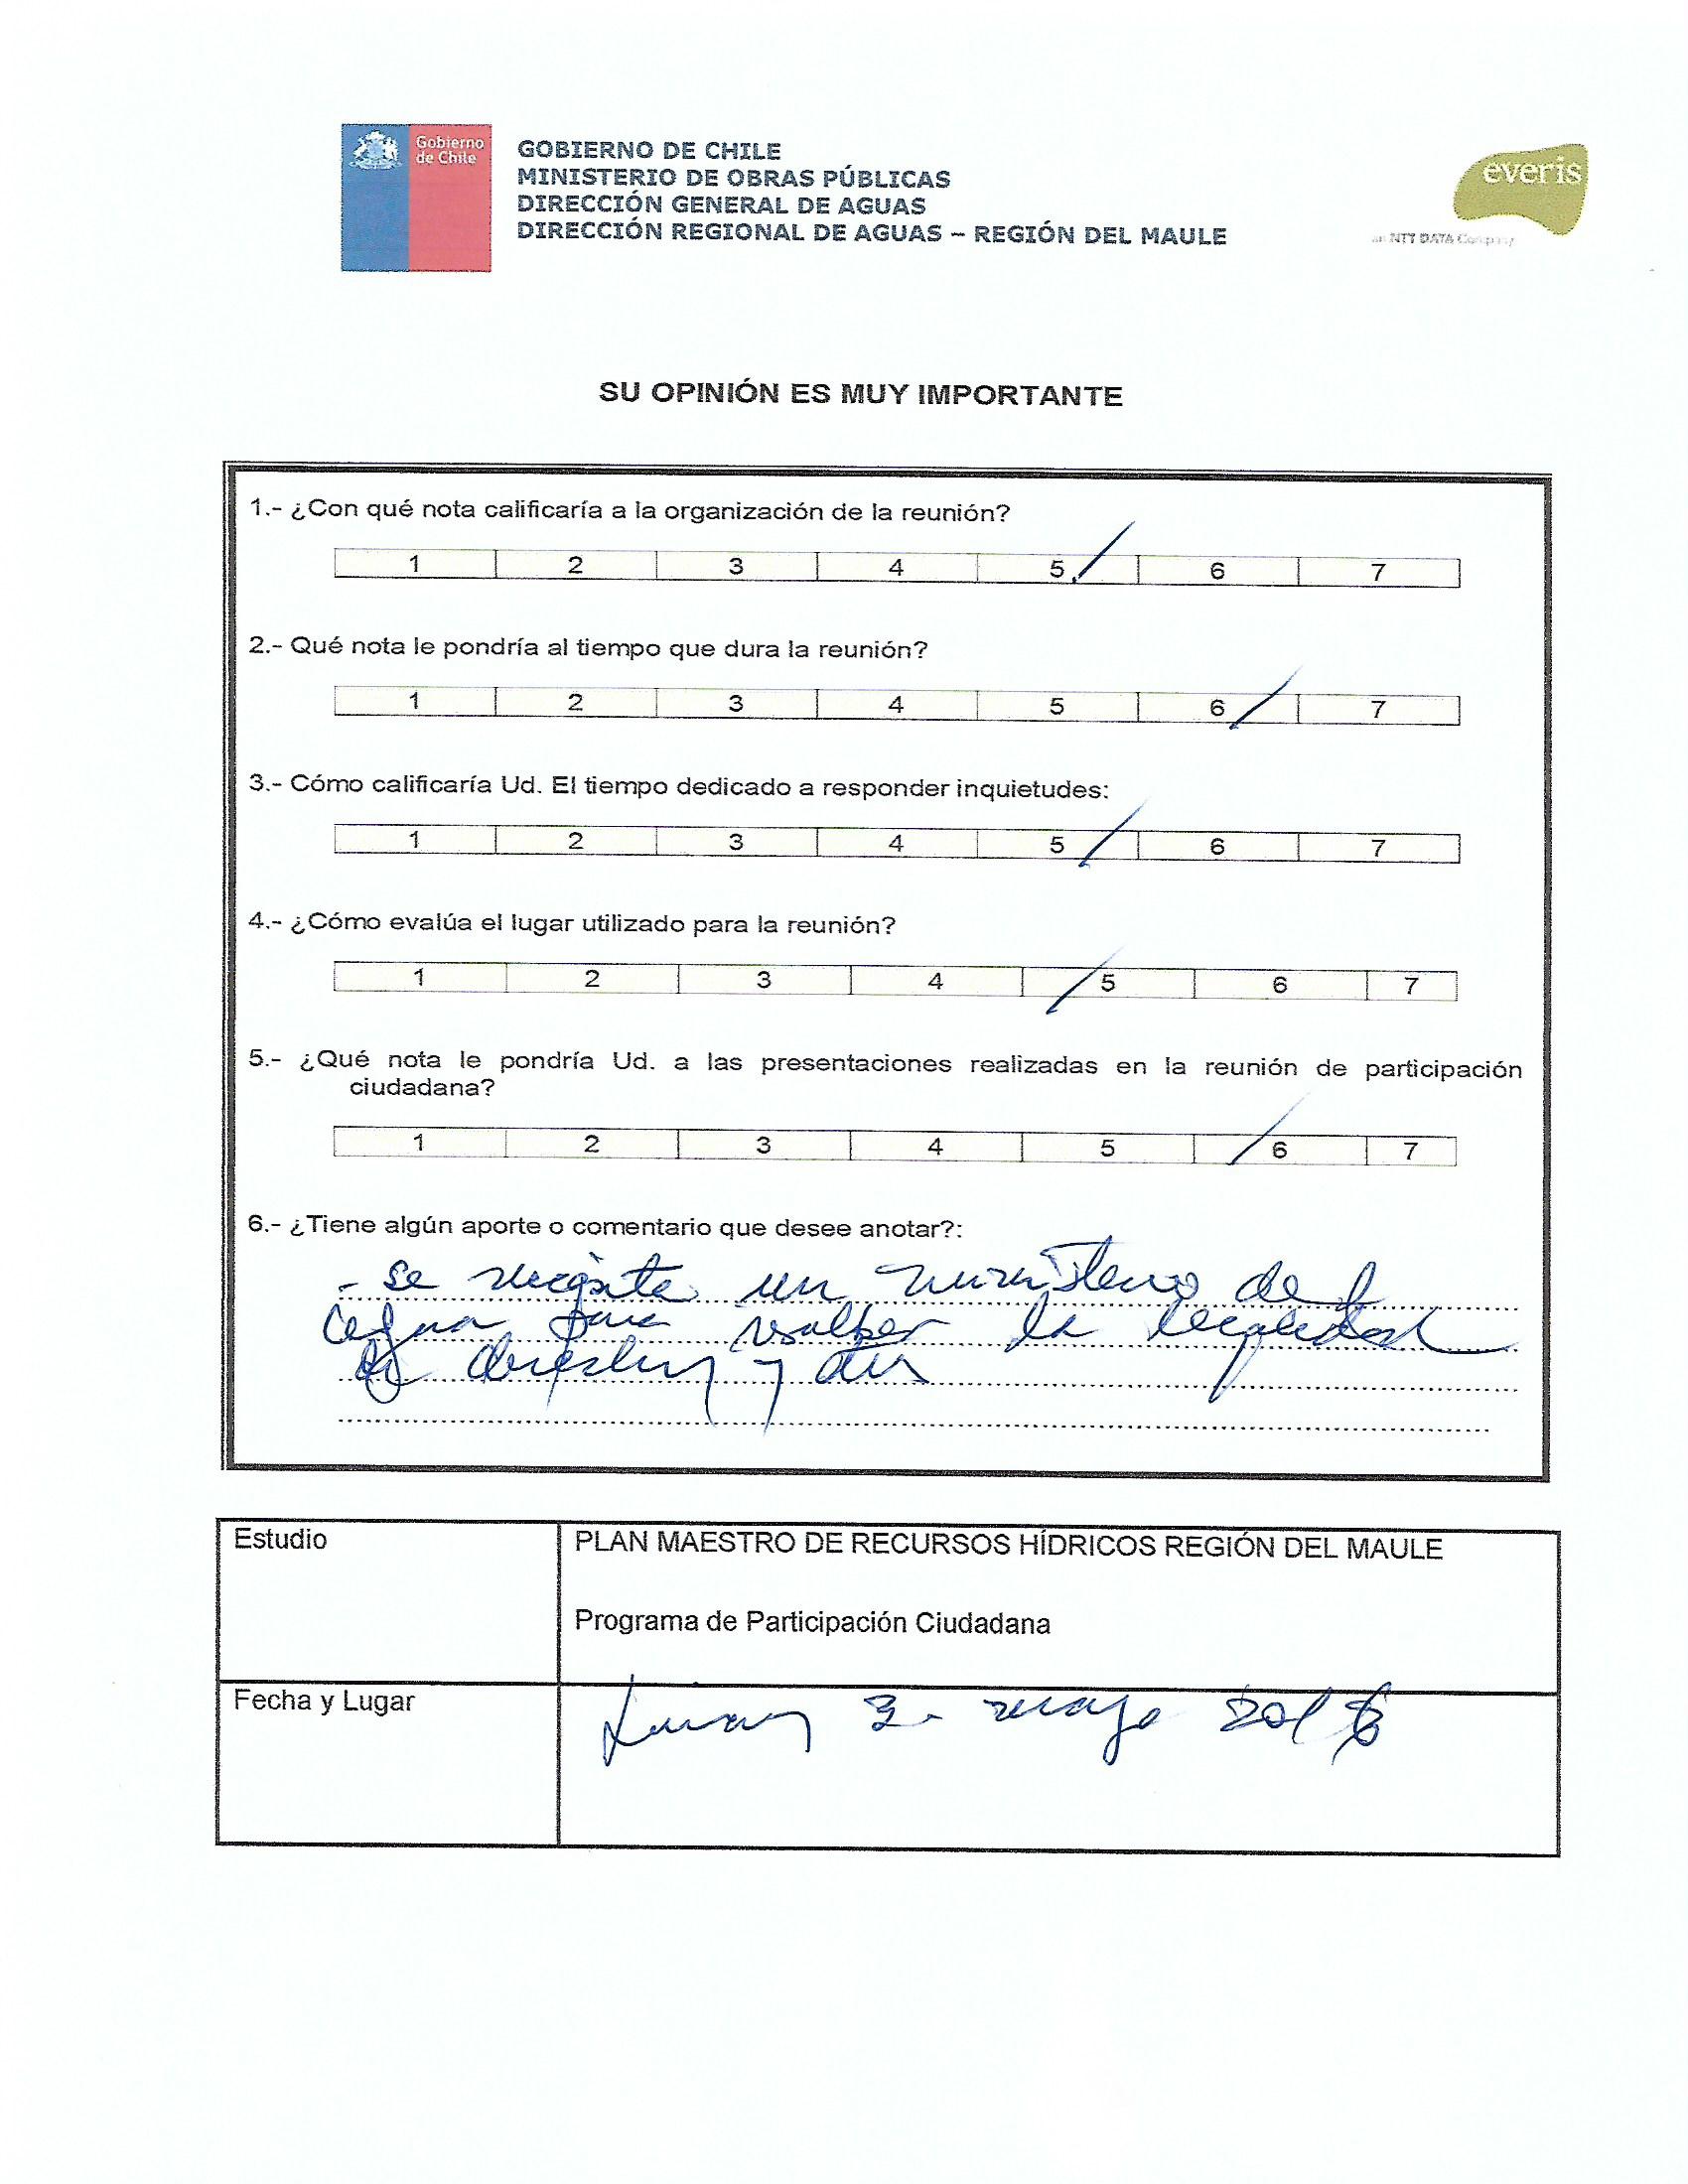 Gobierno
de Chile
GOBIERNO DE CHILE
MINISTERIO DE OBRAS PÚBLICAS
DIRECCIÓN GENERAL DE AGUAS
DIRECCIÓN REGIONAL DE AGUAS – REGIÓN DEL MAULE
everis
an NTT DATA Company
SU OPINIÓN ES MUY IMPORTANTE
1.- ¿Con qué nota calificaría a la organización de la reunión?
1 2 3 4 5 6 7
2.- Qué nota le pondría al tiempo que dura la reunión?
1 2 3 4 5 6 7
3.- Cómo calificaría Ud. El tiempo dedicado a responder inquietudes:
1 2 3 4 5 6 7
4.- ¿Cómo evalúa el lugar utilizado para la reunión?
1 2 3 4 5 6 7
5.- ¿Qué nota le pondría Ud. a las presentaciones realizadas en la reunión de participación
ciudadana?
1 2 3 4 5 6 7
6.- ¿Tiene algún aporte o comentario que desee anotar?:
- se necesita un ministerio del
agua para la
y
Estudio
PLAN MAESTRO DE RECURSOS HÍDRICOS REGIÓN DEL MAULE
Programa de Participación Ciudadana
Fecha y Lugar
mayo